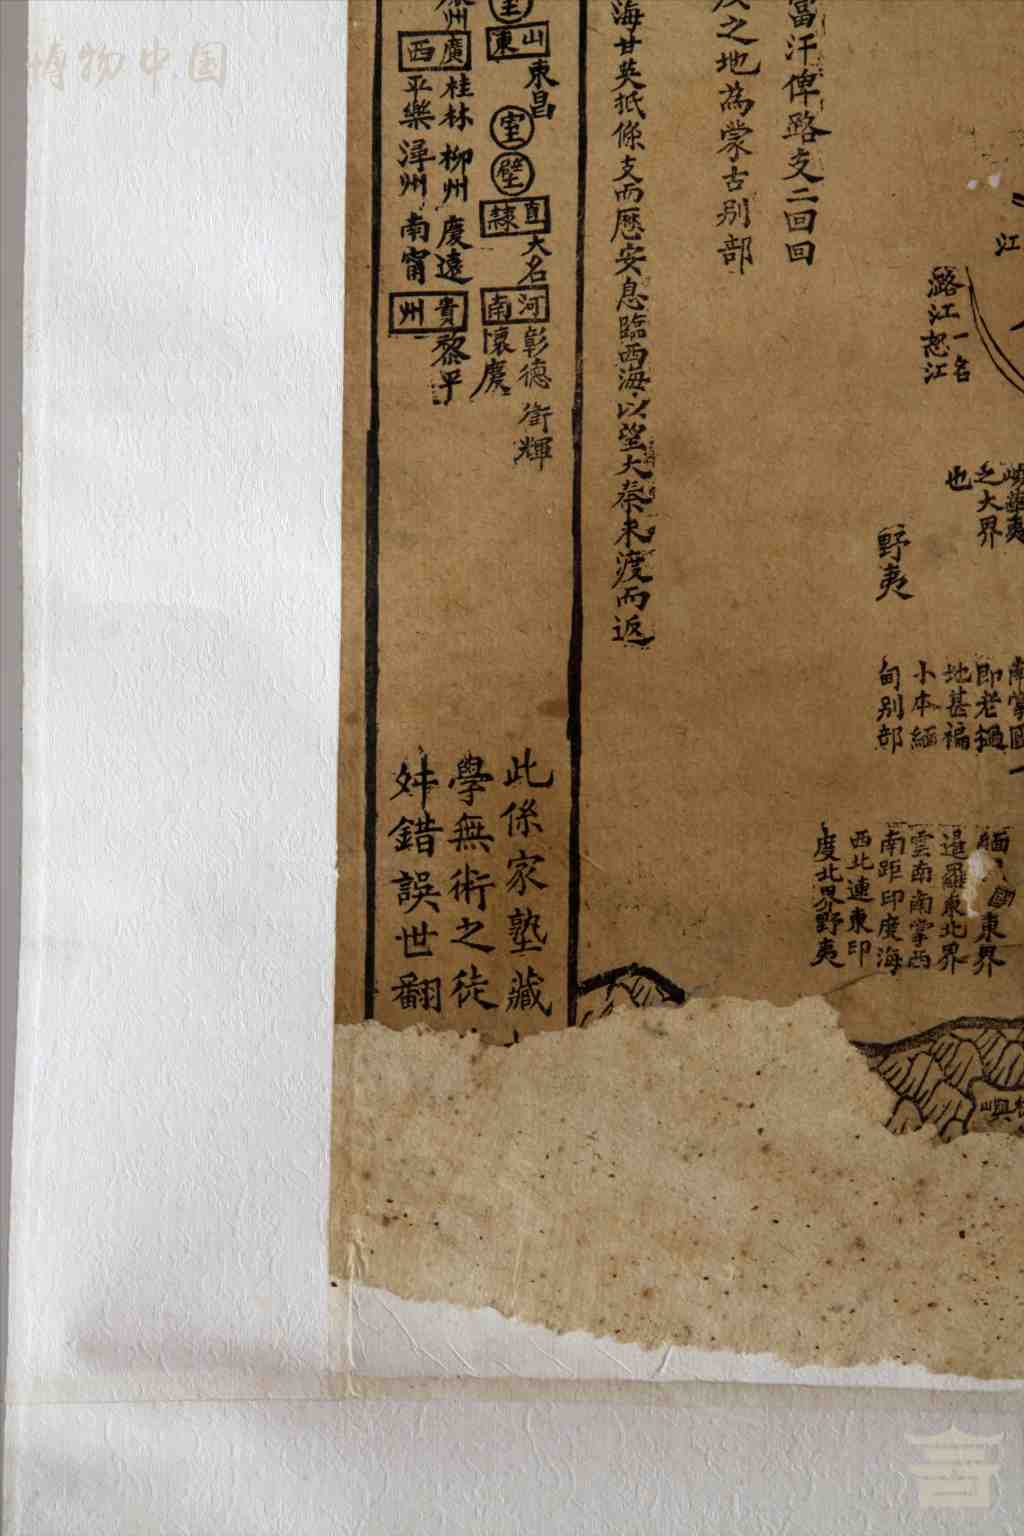 博物中国
江
潞江一名怒江
之大界
也
野夷
南掌國
即老撾
地甚褊
小本緬
甸别部
東界
暹羅東北界
雲南南掌西
南距印度海
西北連東印
度北界野夷
富汗俾路支二回回
之地為蒙古别部
海甘英抵條支而歷安息臨西海以望大秦未渡而返
山東
東昌
室
壁
直隸
大名
河南
彰德 衛輝
懷慶
廣西
桂林 柳州 慶遠
平樂 潯州 南甯
貴州
黎平
此係家塾藏
學無術之徒
舛錯誤世翻